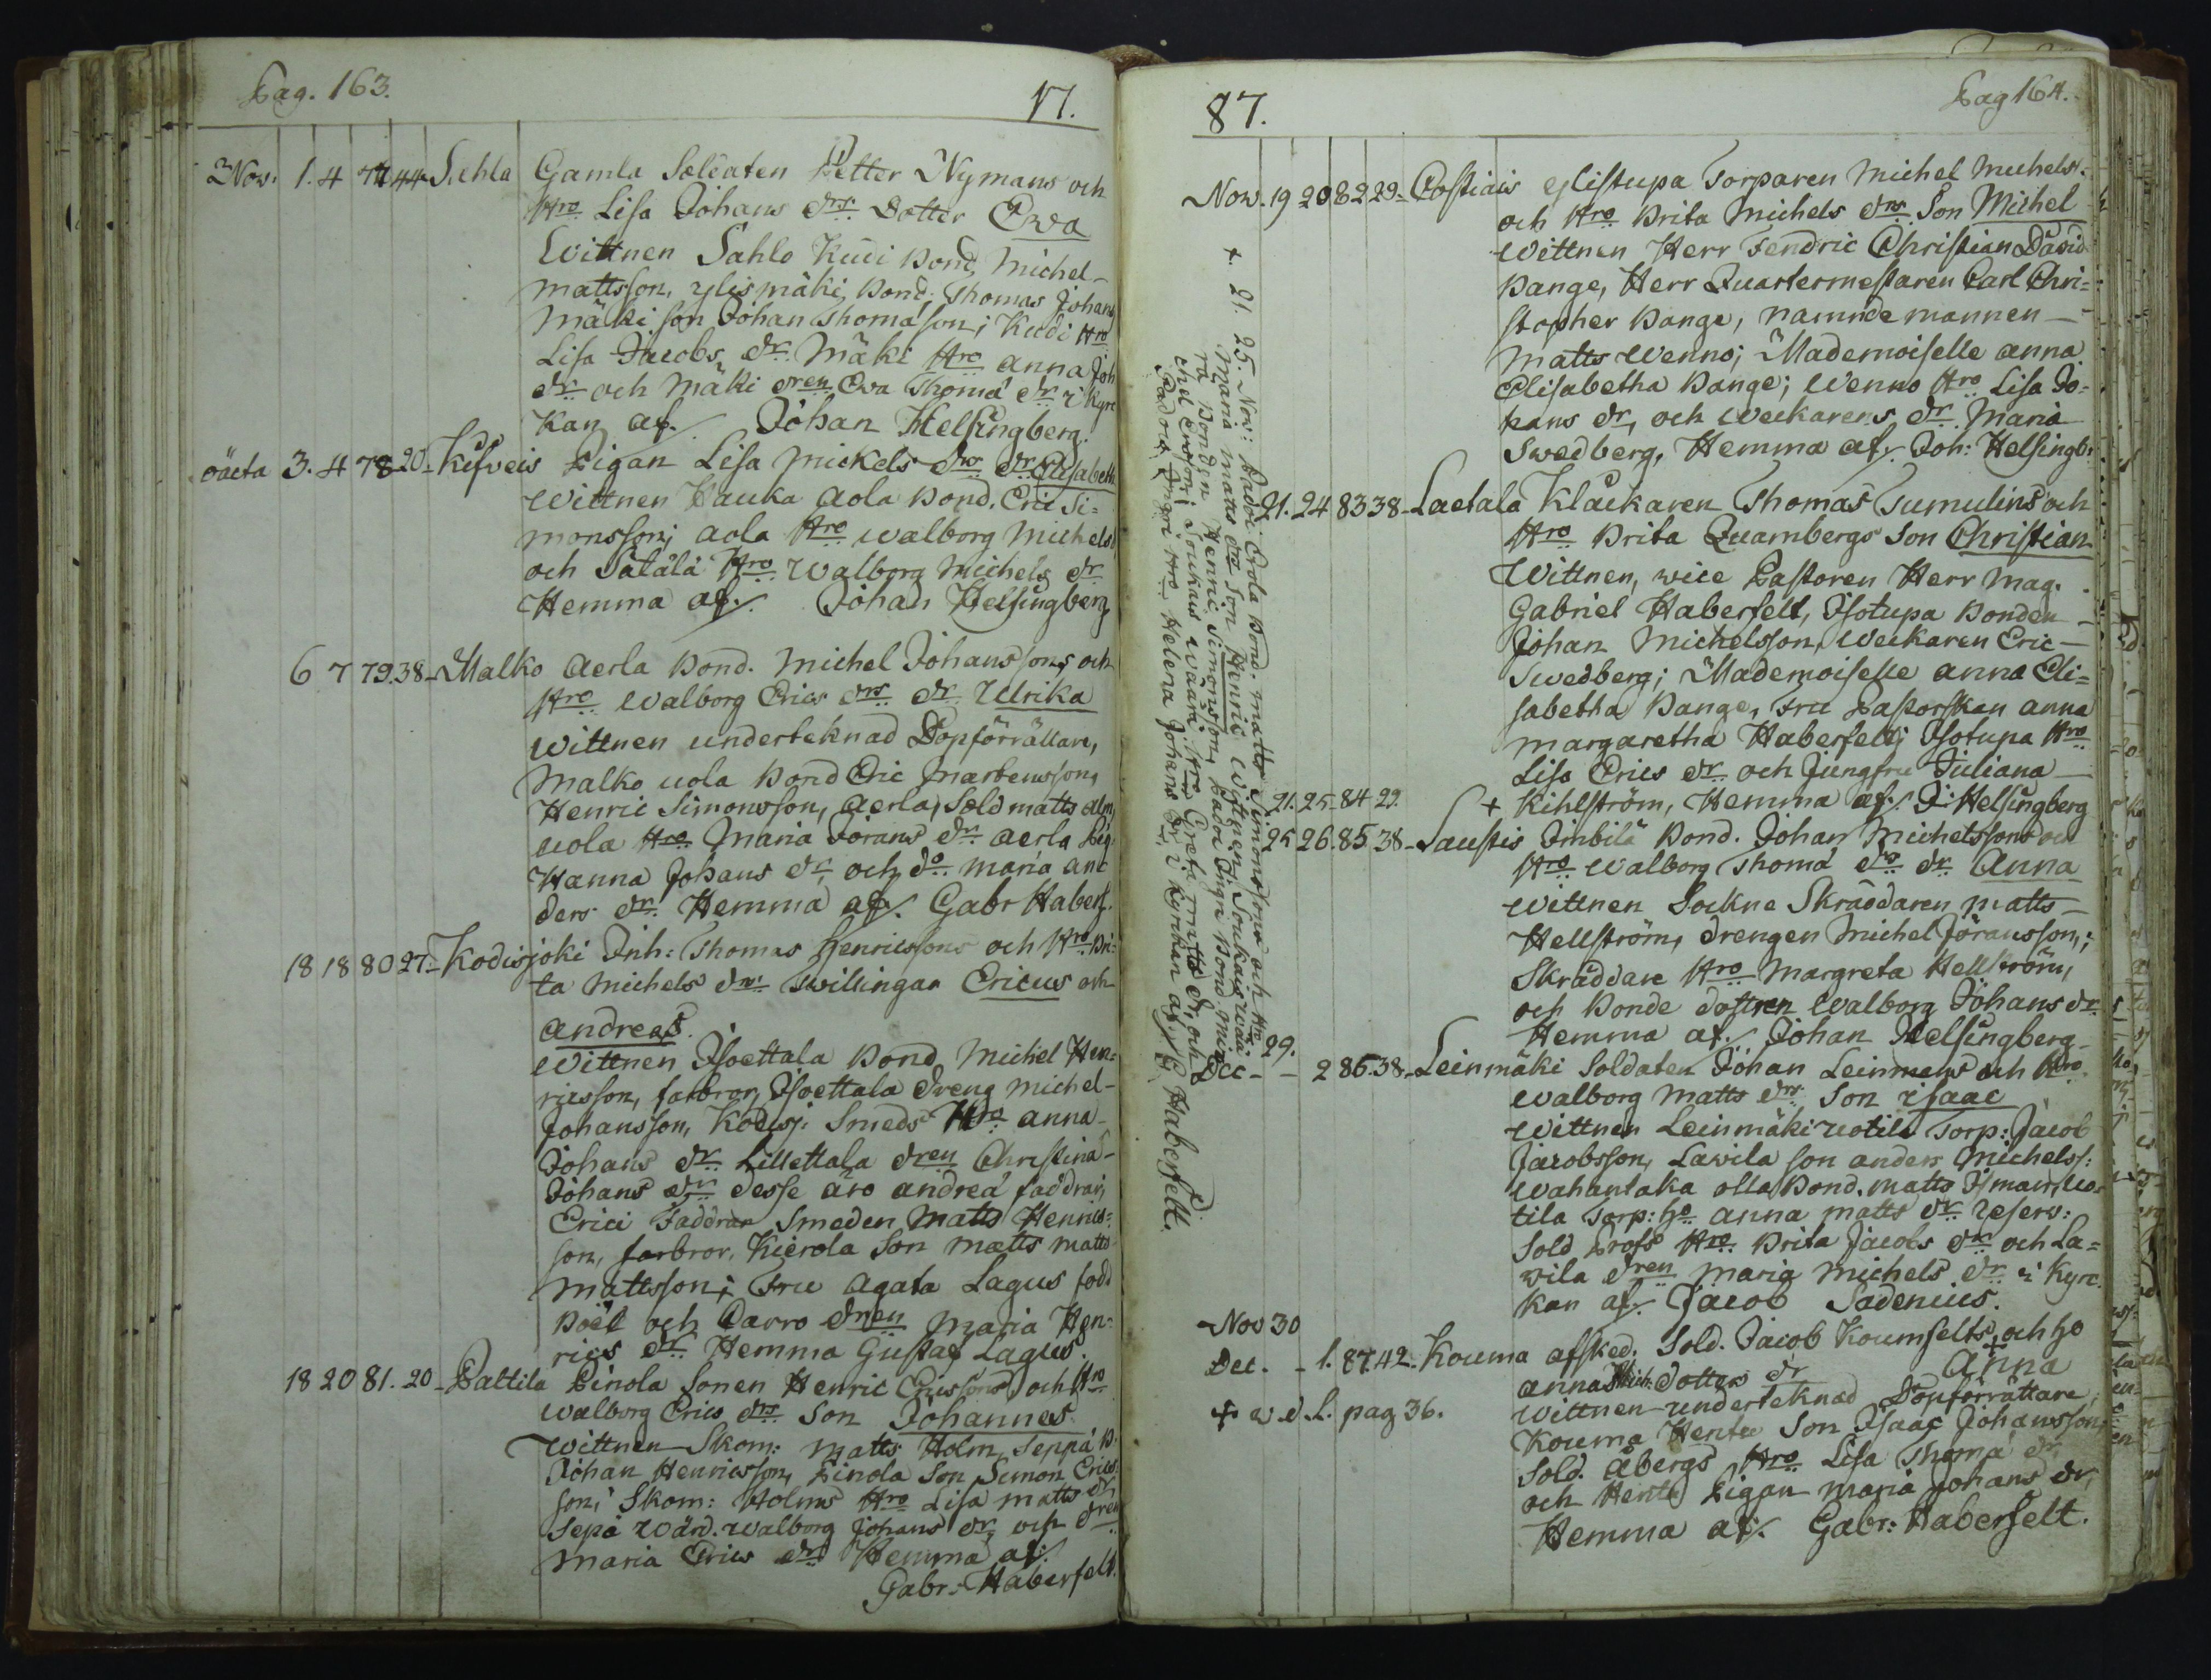 Pag. 163.
17.
2 Nov. 1. 4 77 44 Sehla Gamla Soldaten Petter Nymans och
Hro Lisa Johans drs Dotter Ewa
Wittnen Sahlo Kudi Bond, Michel
mattsson, ylismäki Bond. Thomas Johans
mäki son Johan Thomasson; Kudi Hro
Lisa Jacobs dr. Mäki Hro anna Joh
dr och Mäki dren Ewa Thoma dr i Kyrc
kan af. Johan Helsingberg.
oäcta 3. 4 78 20 Kefveis Pigan Lisa Mickels drs dr Elisabeth
Wittnen Hauka aola Bond. Eric Si=
monsson; aola Hro walborg Michels
och Salala Hro Walborg Michels dr
Hemma af. Johan Helsingberg
6 7 79. 38 Malko aerla Bond. Michel Johanssons och
Hro walborg Erics drs dr Ulrika
wittnen underteknad Döpförrättare,
Malko uola Bond Eric Martensson,
Henric Simonsson, aerla, Sold matts alm,
uola Hro Maria Jörans dr aerla Pig
Hanna Johans dr, och do maria an
ders dr. Hemma af. Gabr Haberf.
18 18 80 27. Kodisjoki Inh: Thomas Henricssons och Hro Bri=
ta Michels drs twillingar Ericus och
andreas.
Wittnen Isoettala Bond. Michel Hen=
ricsson, farbror, Isoettala dreng michel
Johansson, Kodisj. Smeds Hro anna
Johans dr. Lillettala dren Christina
Johans dr desse äro andreä faddrar,
Erici Faddrar Smeden Matts Henrics=
son, farbror, Kierola Son matts matts
mattsson; Fru agata Lagus född
Böel och Carro dren Maria Hen=
rics dr Hemma Gustaf Lagus.
18 20 81. 20 Pattila Pinola Sonen Henric Ericssons och Hro
walborg Erics drs Son Johannes
Wittnen Skom: matts Holm, Seppä B.
Johan Henricsson, Pinola Son Simon Erics
son; Skom: Holms Hro Lisa matts dr
Sepä wärd. walborg Johans dr, och dren
Maria Erics dr Hemma af.
Gabr: Haberfelt.
87.
Pag 164.
Nov. 19 20 82 29 Costiais ylistupa Torparen Michel Michelss.
och Hro Brita Michels drs Son Michel
Wittnen Herr Fendric Christian David
Bange, Herr Quartermestaren Carl Chri=
stopher Bange, namndemannen
Matts Wenno; Mademoiselle anna
Elisabetha Bange; Wenno Hro Lisa Jo=
hans dr, och weckarens dr Maria
Swedberg, Hemma af. Joh: Helsingb:
21. 24 83 38 Laetala Klåckaren Thomas Tumulins och
Hro Brita Quambergs Son Christian
Wittnen, vice Pastoren Herr Mag.
Gabriel Haberfelt, Isotupa Bonden
Johan Michelsson, weckaren Eric
Swedberg; Mademoiselle anna Eli=
sabetha Bange, Fru Pastorskan anna
margaretha Haberfelt; Isotupa Hro
Lisa Erics dr och Jungfru Juliana
21. 25 84 29. + Kihlström, Hemma af. J: Helsingberg
25 26. 85. 38 Laustis Simbilä Bond. Johan Michelssons och
Hro Walborg Thoma drs dr Anna
wittnen Sockne Skräddaren matts
Hellström, drengen Michel Jöransson,;
Skräddare Hro Margreta Hellström,
och Bonde dottren walborg Johans dr
Hemma af. Johan Helsingberg
29.
Dec 2 86. 38 Leinmäki Soldaten Johan Leinmans och Hro
walborg Matts drs Son Isaac
Wittnen Leinmäki uotila Torp: Jacob
Jacobsson, Lawila son anders Michelss:
Wahantaka olla Bond. matts Ismaels, uo=
tila Torp: ho anna matts dr Reserv:
Sold. Profs Hro Brita Jacobs dr och La=
wila dren Maria Michels dr i Kyrc
kan af. Jacob Sadenius.
Nov 30
Dec. 1. 87. 42. Kouma afsked. Sold. Jacob Koumfelts, och ho
anna Mich: dotters dr + Anna
+ w. d. L. pag 36. wittnen underteknad Döpförrättare,
Kouma Hentu Son Isaac Johansson,
Sold. åbergs Hro Lisa Thoma dr
och Hentu Pigan Maria Johans dr,
Hemma af. Gabr: Haberfelt.
+. 21. 25. Nov: Erola Bond. matts Simonssons och Hro
Maria matts drs Son Henric Wittnen Soukais waa
ra Bonden Henric Simonsson, Ingri Bond Mi
chel Ersson; Soukais waara Hro Greta matts dr, och
Ingri Hro Helena Johans dr, i Kyrckan af. G. Haberfelt.